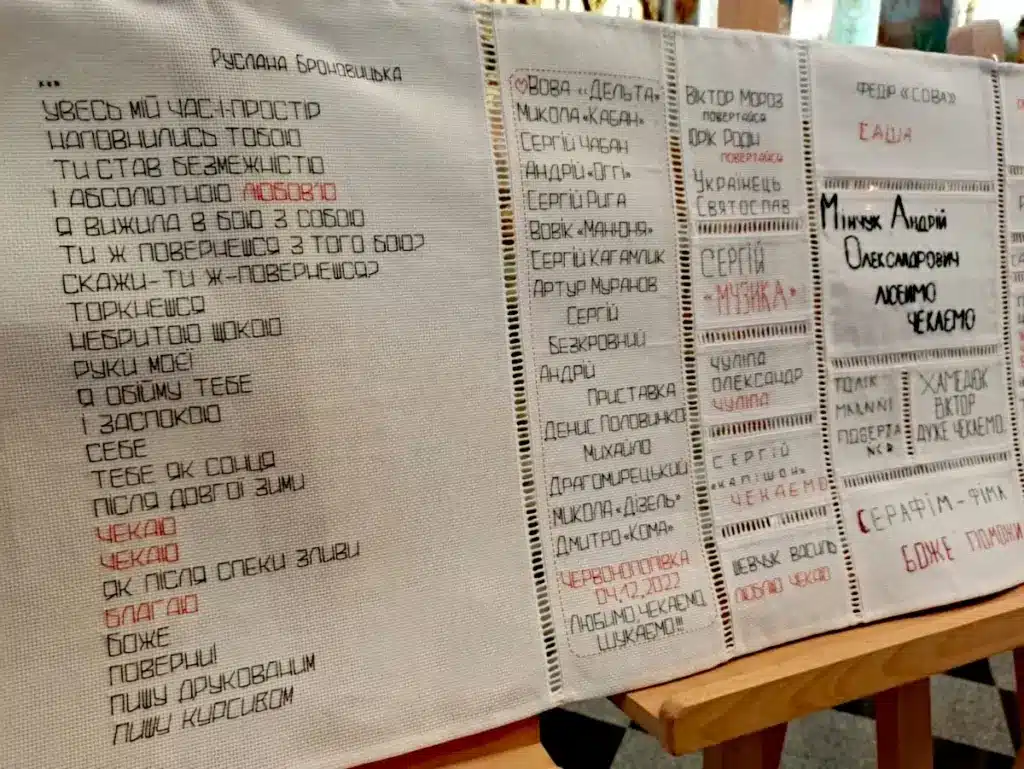 Руслана Броновицька
...
УВЕСЬ МІЙ ЧАС-І-ПРОСТІР
НАПОВНИЛИСЬ ТОБОЮ
ТИ СТАВ БЕЗМЕЖНІСТЮ
І АБСОЛЮТНОЮ ЛЮБОВ'Ю
Я ВИЖИЛА В БОЮ З СОБОЮ
ТИ Ж ПОВЕРНЕШСЯ З ТОГО БОЮ?
СКАЖИ-ТИ Ж-ПОВЕРНЕШСЯ?
ТОРКНЕШСЯ
НЕБРИТОЮ ЩОКОЮ
РУКИ МОЄЇ
Я ОБІЙМУ ТЕБЕ
І ЗАСПОКОЮ
СЕБЕ
ТЕБЕ ЯК СОНЦЯ
ПІСЛЯ ДОВГОЇ ЗИМИ
ЧЕКАЮ
ЧЕКАЮ
ЯК ПІСЛЯ СПЕКИ ЗЛИВИ
БЛАГАЮ
БОЖЕ
ПОВЕРНИ!
ПИШУ ДРУКОВАНИМ
ПИШУ КУРСИВОМ
ВОВА «ДЕЛЬТА»
МИКОЛА «КАБАН»
СЕРГІЙ ЧАБАН
АНДРІЙ «ОГГІ»
СЕРГІЙ РИГА
ВОВІК «МАНЮНЯ»
СЕРГІЙ КАГАМЛИК
АРТУР МУРАНОВ
СЕРГІЙ
БЕЗКРОВНИЙ
АНДРІЙ
ПРИСТАВКА
ДЕНИС ПОЛОВИНКО
МИХАЙЛО
ДРАГОМИРЕЦЬКИЙ
МИКОЛА «ДІЗЕЛЬ»
ДМИТРО «КОМА»
ЧЕРВОНОПОПІВКА
04.12.2022
ЛЮБИМО, ЧЕКАЄМО,
ШУКАЄМО!!!
ВІКТОР МОРОЗ
ПОВЕРТАЙСЯ
ЮРІК РОДИ
ПОВЕРТАЙСЯ
УКРАЇНЕЦЬ
СВЯТОСЛАВ
СЕРГІЙ
«МУЗИКА»
ЧУЛІПА
ОЛЕКСАНДР
ЧУЛІПА
СЕРГІЙ
«КАПІШОН»
ЧЕКАЄМО
ШЕВЧУК ВАСИЛЬ
ЛЮБЛЮ ЧЕКАЮ
ФЕДІР «СОВА»
САША
МІНЧУК АНДРІЙ
ОЛЕКСАНДРОВИЧ
ЛЮБИМО
ЧЕКАЄМО
ТОЛІК
ПОВЕРТА
ЙСЯ
ХАМЕДЮК
ВІКТОР
ДУЖЕ ЧЕКАЄМО
СЕРАФІМ-ФІМА
БОЖЕ ПОМОЖИ